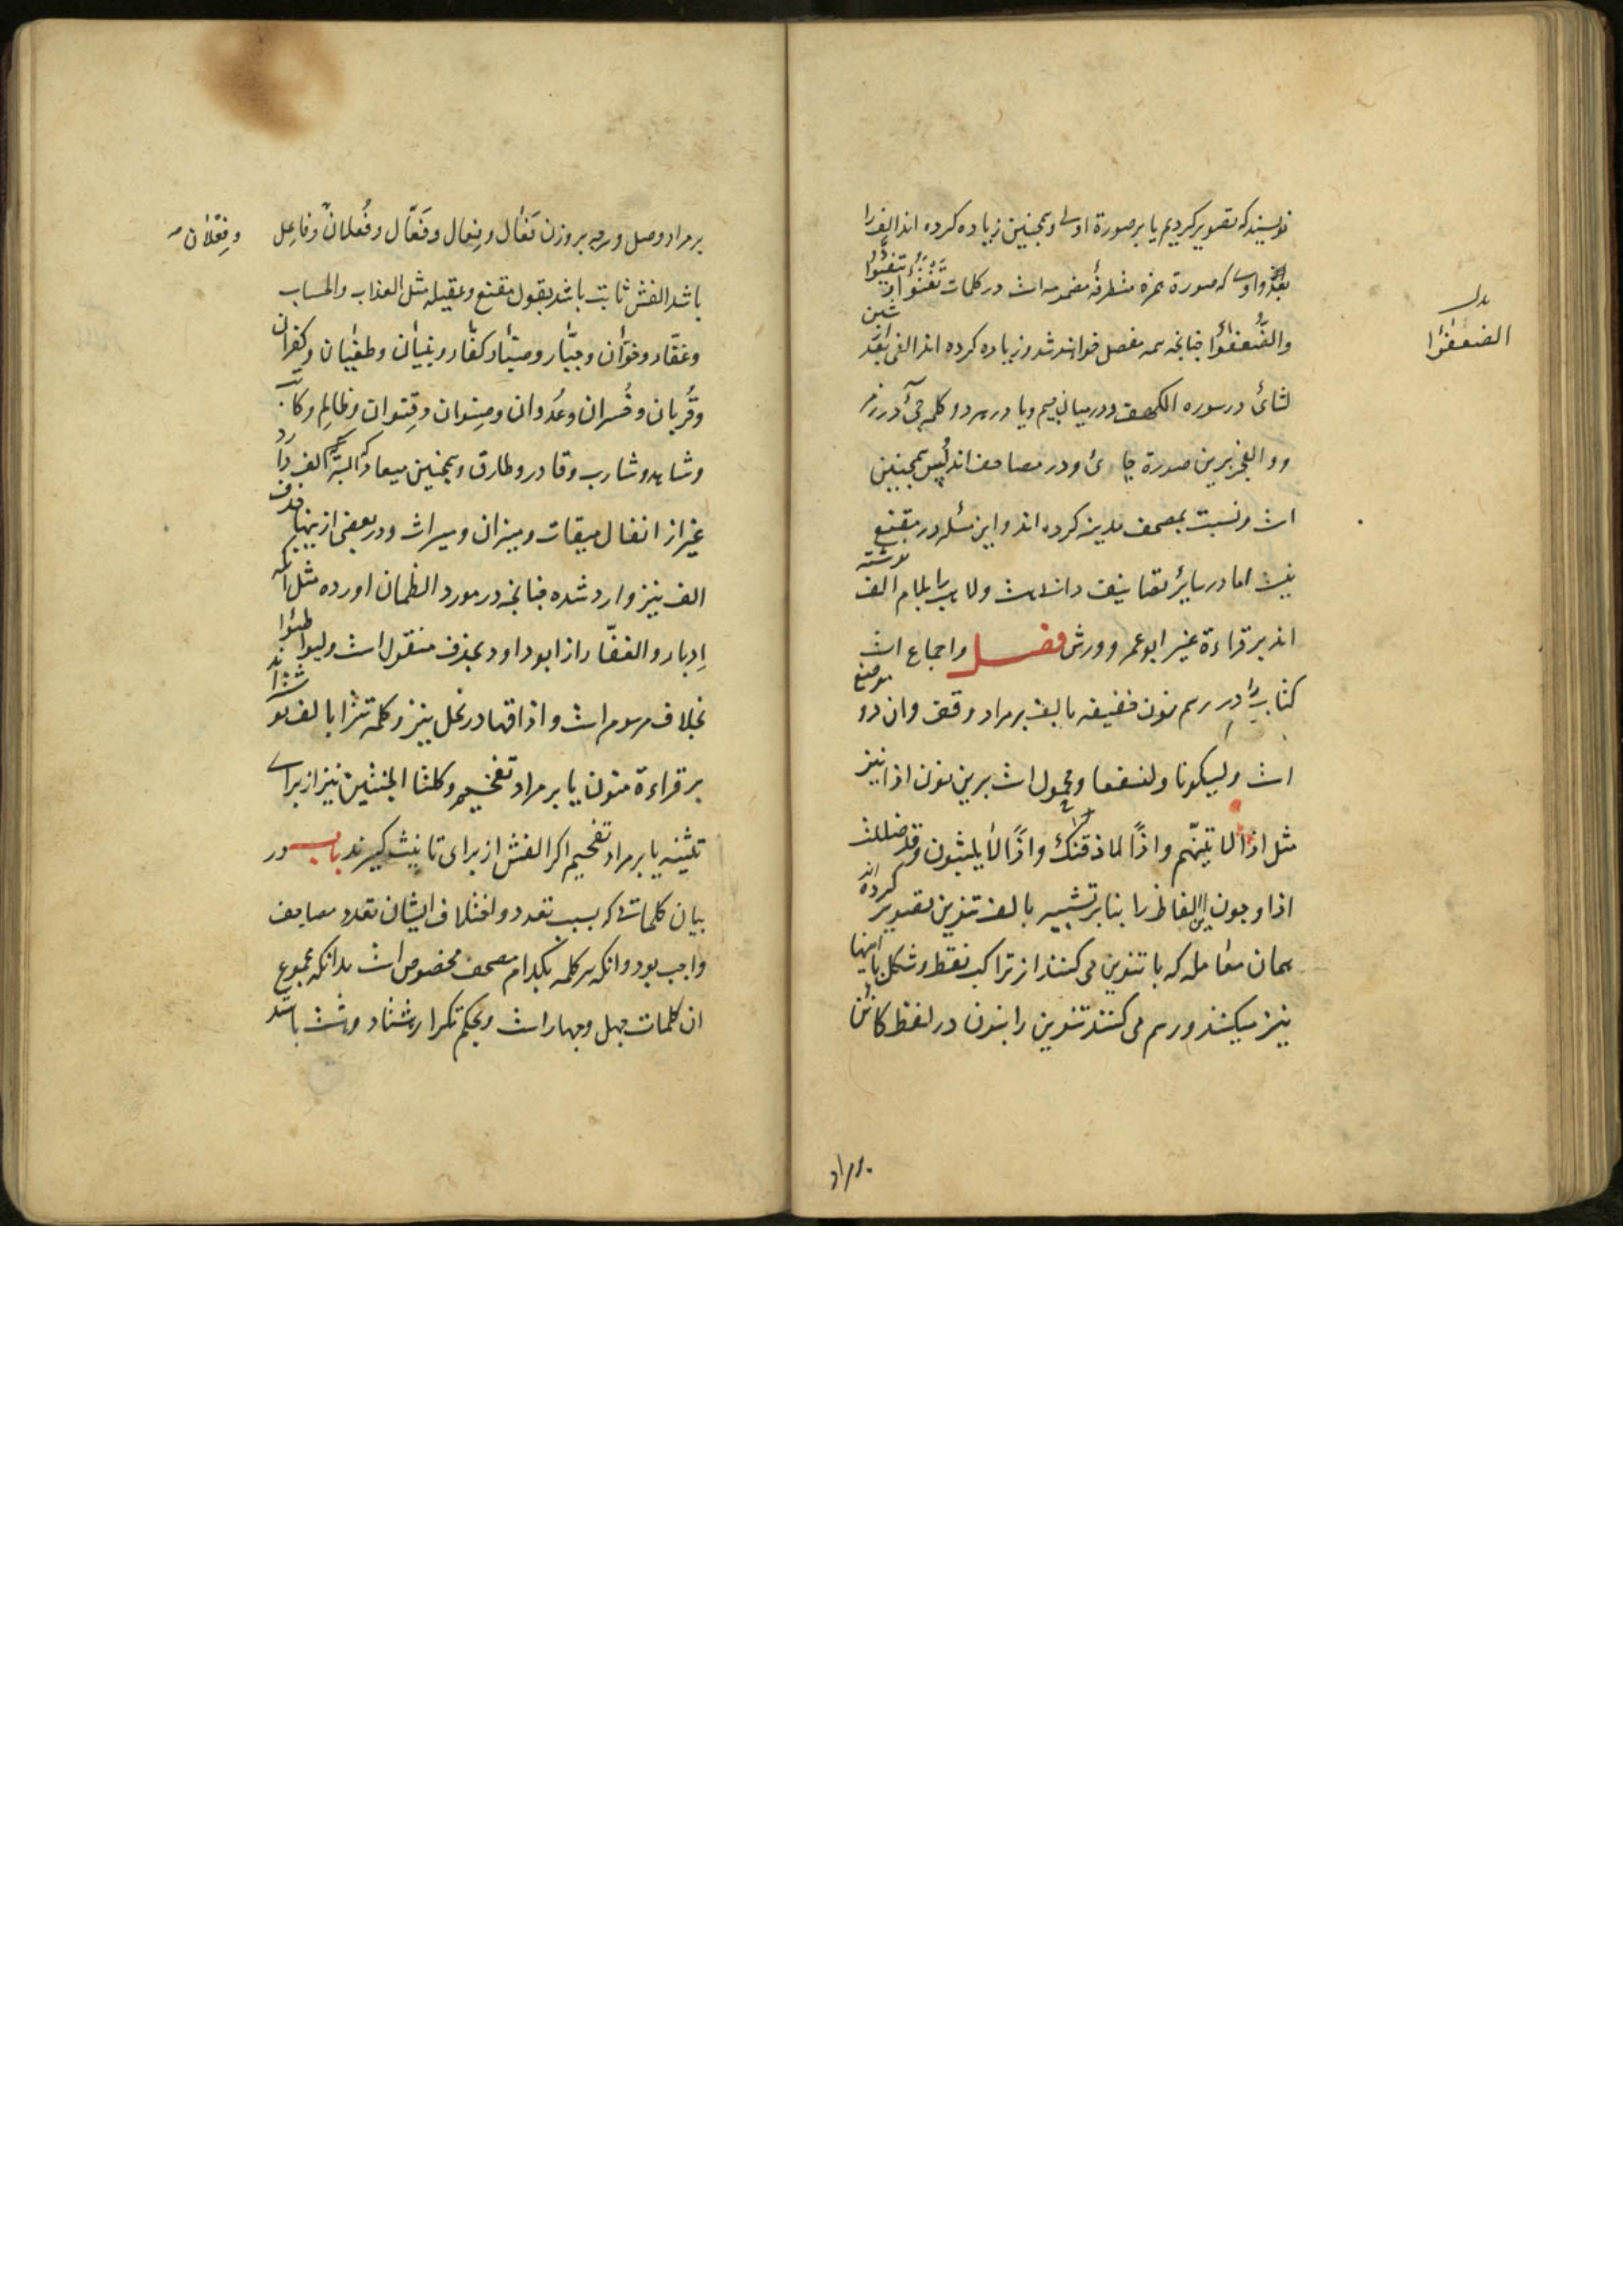 نویسند که تصویر کردیم یا بر صورة اولی و همچنین زیاده کرده اند الف را
بعد واوی که صورة همزه متطرفهٔ مضمومه است در کلمات تفتؤا یتفیؤا
والضعفؤا چنانچه همه مفصل خواهند شد و زیاده کرده اند الفی بعد شین
لشائ در سوره الکهف و در میان جیم و یا در هر دو کلمه جیء در زمر
و والفجر برین صورة جائ و در مصاحف اندلس همچنین
است و نسبت بمصحف مدینه کرده اند و این مسئله در مقنع
نیست اما در سایر تصانیف دانی است و لاهب را بلام الف نوشته
اند بر قراءة غیر ابو عمرو و ورش فصل و اجماع است
کتاب را در رسم نون خفیفه بالف بر مراد وقف و ان دو موضع
است ولیکونا ولنسفعا و محمول است برین نون اذا نیز
مثل اذا لاتینهم و اذًا لاذقنک و اذًا لا یلبثون و قد ضللت
اذا و چون این الفاظ را بنابر تشبیه بالف تنوین تصویر کرده اند
همان معامله که با تنوین می کنند از تراکب نقط و شکل با اینها
نیز میکنند و رسم می کنند تنوین را بنون در لفظ کائن
بدل
الضعفؤا
بر مراد
بر مراد وصل و هرچه بر وزن فَعَال و فِعال و فَعّال و فُعلان و فاعِل
و فِعْلان
باشد الفش ثابت باشد بقول مقنع و عقیله مثل العذاب والحساب
و غفّار و خوّان و جبّار و کفّار و بنیان و طغیان و کفران
و قُربان و خُسران و عُدوان و صِنوان و قِنوان و ظالِم و کاتب
و شاهد و شارب و قادر و طارق و همچنین میعاد که البته الف دارد
غیر از انفال میقات و میزان و میراث و در بعضی ازینها حذف
الف نیز وارد شده چنانچه در مورد الظمان اورده مثل انکه
اِدبار و الغفّار از ابو داود بحذف منقول است و لیواطئوا
بخلاف مرسوم است و اذاقها در نحل نیز و کلمه تترا بالف نوشته اند
بر قراءة منون یا بر مراد تفخیم و کلتا الجنتین نیز از برای
تثنیه یا بر مراد تفخیم اگر الفش از برای تانیث گیرند باب در
بیان کلماتی که بسبب تعدد و اختلاف ایشان تعدد مصاحف
واجب بود و انکه هر کلمه بکدام مصحف مخصوص است بدانکه مجموع
ان کلمات چهل و چهار است و بحکم تکرار هشتاد و شش باشد